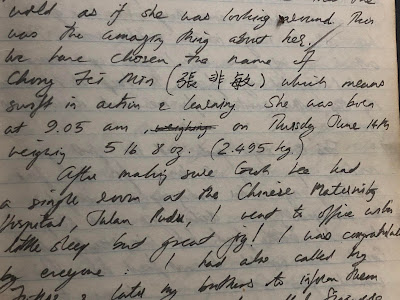 world as if she was looking around. This
was the amazing thing about her.
We have chosen the name of
Chong Fei Min (張 非 敏) which means
swift in action & learning. She was born
at 9.05 am, weighing on Thursday June 14th
weighing 5 lb 8 oz. (2.495 kg)
After making sure Geok Lee had
a single room at the Chinese Maternity
Hospital, Jalan Pudu, I went to office with
little sleep but great joy! I was congratulated
by everyone. I had also called my
& later my brothers to inform them